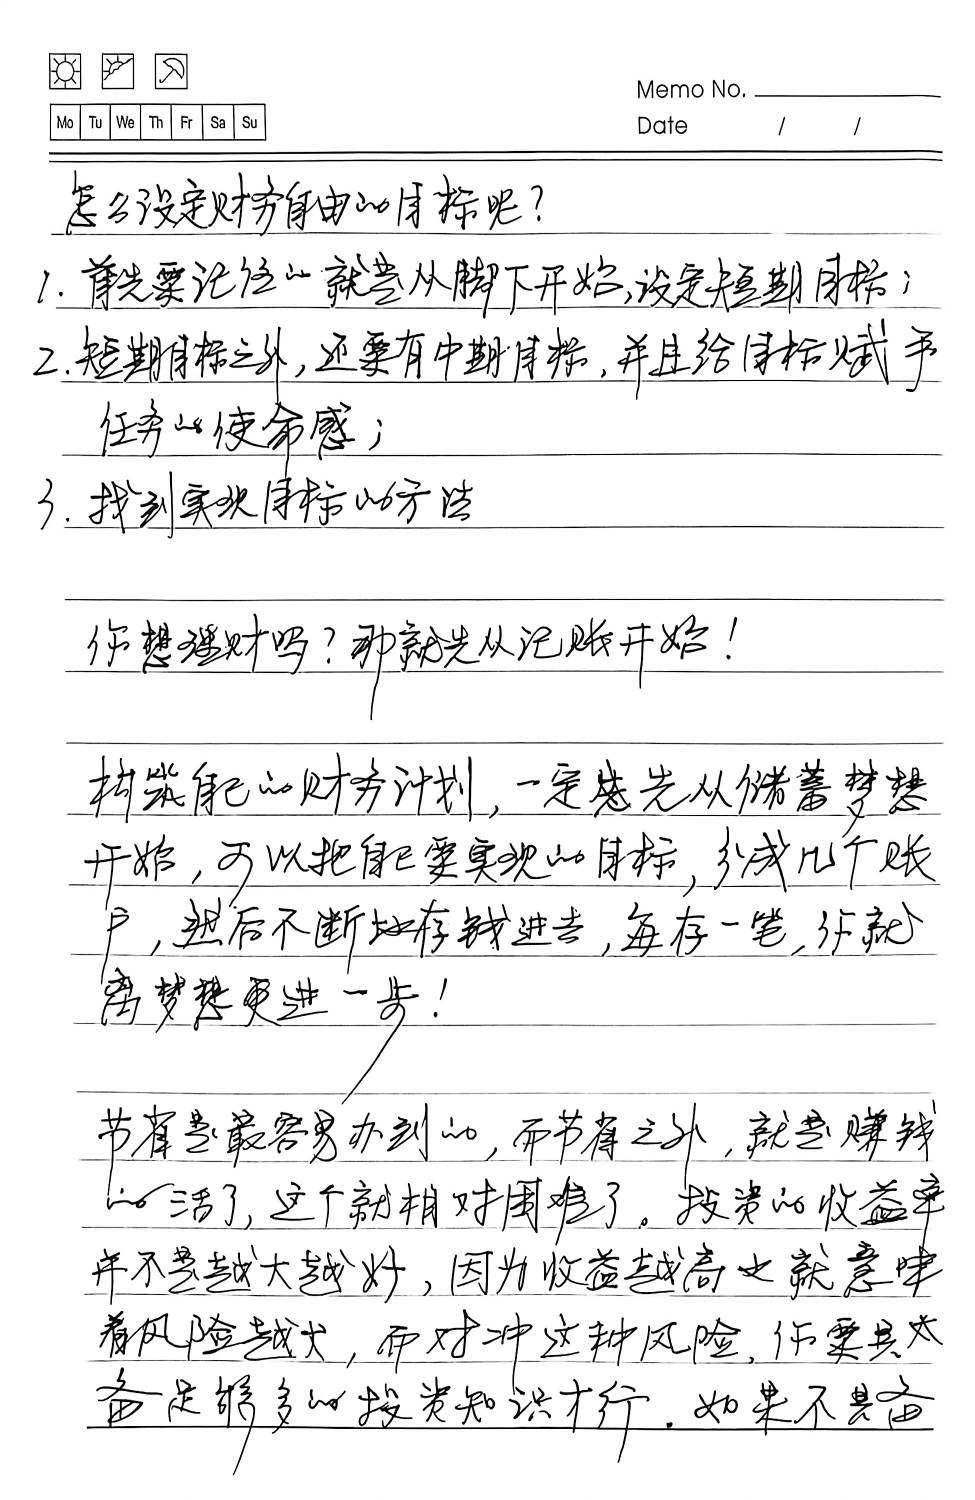 Memo No.
Mo Tu We Th Fr Sa Su
Date / /
怎么设定财务自由的目标呢？
1. 首先要记住的就是从脚下开始,设定短期目标；
2. 短期目标之外，还要有中期目标，并且给目标赋予
任务的使命感；
3. 找到实现目标的方法
你想理财吗？那就先从记账开始！
构筑自己的财务计划，一定是先从储蓄梦想
开始，可以把自己要实现的目标，分成几个账
户，然后不断地存钱进去，每存一笔，你就
离梦想更进一步！
节省是最容易办到的，而节省之外，就是赚钱
的活了，这个就相对困难了。投资的收益率
并不是越大越好，因为收益越高也就意味
着风险越大，而对冲这种风险，你要具
备足够多的投资知识才行．如果不具备